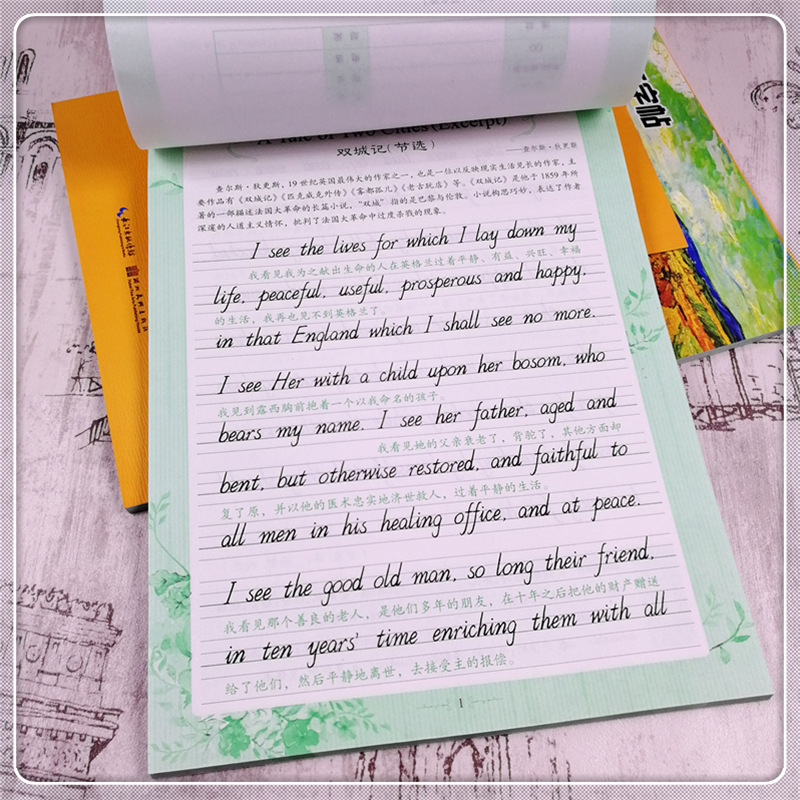 A Tale of Two Cities (Excerpt)
双城记（节选）
——查尔斯·狄更斯
查尔斯·狄更斯，19 世纪英国最伟大的作家之一，也是一位以反映现实生活见长的作家，主
要作品有《双城记》《匹克威克外传》《雾都孤儿》《老古玩店》等。《双城记》是他于 1859 年所
著的一部描述法国大革命的长篇小说，“双城”指的是巴黎与伦敦。小说构思巧妙，表达了作者
深邃的人道主义情怀，批判了法国大革命中过度杀戮的现象。
I see the lives for which I lay down my
我看见我为之献出生命的人在英格兰过着平静、有益、兴旺、幸福
life, peaceful, useful, prosperous and happy,
的生活，我再也见不到英格兰了。
in that England which I shall see no more.
I see Her with a child upon her bosom, who
我见到露西胸前抱着一个以我命名的孩子。
bears my name. I see her father, aged and
我看见她的父亲衰老了，背驼了，其他方面却
bent, but otherwise restored, and faithful to
复了原，并以他的医术忠实地济世救人，过着平静的生活。
all men in his healing office, and at peace.
I see the good old man, so long their friend,
我看见那个善良的老人，是他们多年的朋友，在十年之后把他的财产赠送
in ten years' time enriching them with all
给了他们，然后平静地离世，去接受主的报偿。
1
字帖